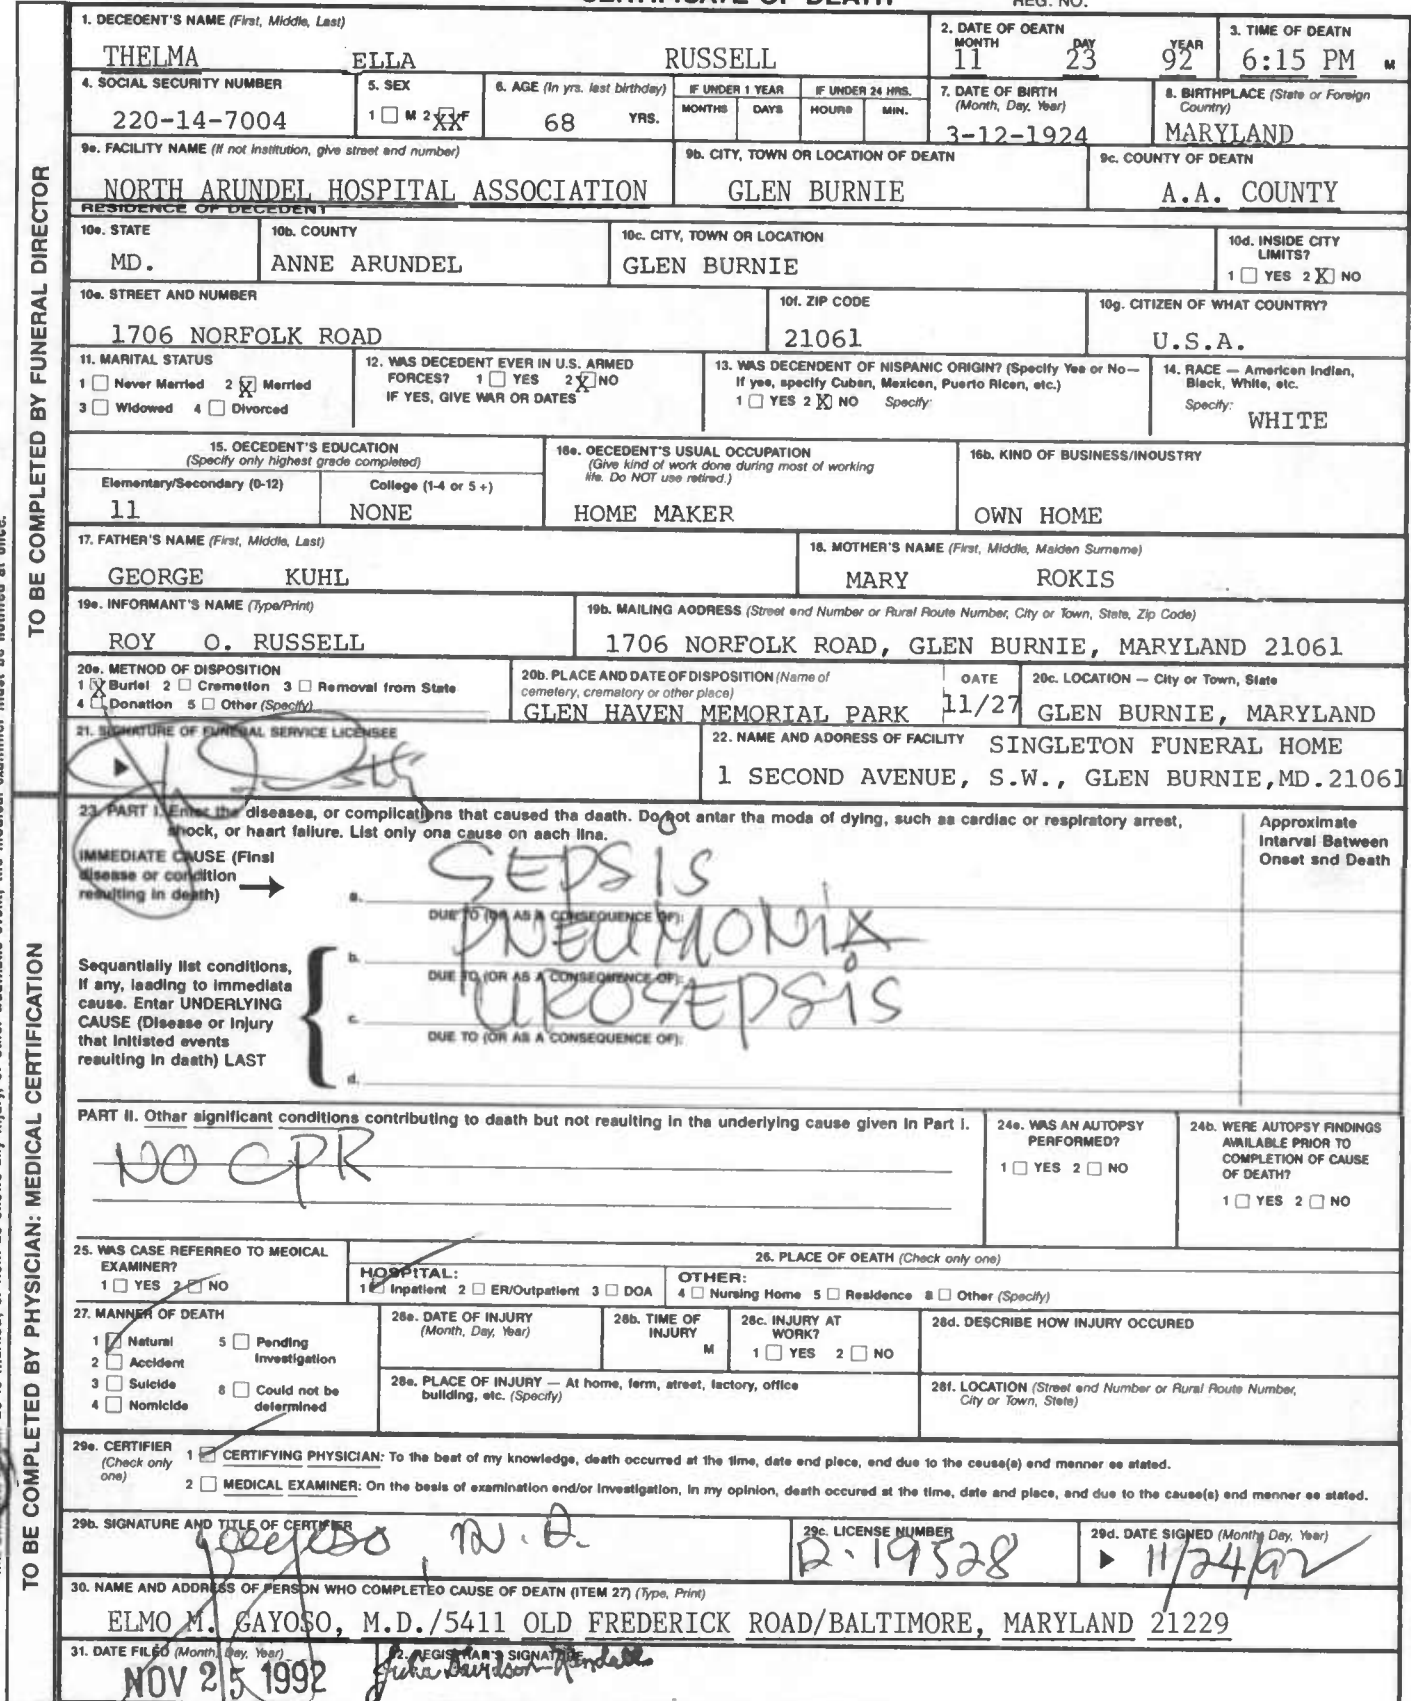 CERTIFICATE OF DEATH REG. NO.
1. DECEDENT'S NAME (First, Middle, Last)
THELMA ELLA RUSSELL
2. DATE OF DEATH
MONTH DAY YEAR
11 23 92
3. TIME OF DEATH
6:15 PM M
4. SOCIAL SECURITY NUMBER
220-14-7004
5. SEX
1 ☐ M 2 XX F
6. AGE (In yrs. last birthday)
68 YRS.
IF UNDER 1 YEAR
MONTHS DAYS
IF UNDER 24 HRS.
HOURS MIN.
7. DATE OF BIRTH
(Month, Day, Year)
3-12-1924
8. BIRTHPLACE (State or Foreign
Country)
MARYLAND
9a. FACILITY NAME (If not institution, give street and number)
NORTH ARUNDEL HOSPITAL ASSOCIATION
9b. CITY, TOWN OR LOCATION OF DEATH
GLEN BURNIE
9c. COUNTY OF DEATH
A.A. COUNTY
RESIDENCE OF DECEDENT
10a. STATE
MD.
10b. COUNTY
ANNE ARUNDEL
10c. CITY, TOWN OR LOCATION
GLEN BURNIE
10d. INSIDE CITY
LIMITS?
1 ☐ YES 2 X NO
10e. STREET AND NUMBER
1706 NORFOLK ROAD
10f. ZIP CODE
21061
10g. CITIZEN OF WHAT COUNTRY?
U.S.A.
11. MARITAL STATUS
1 ☐ Never Married 2 X Married
3 ☐ Widowed 4 ☐ Divorced
12. WAS DECEDENT EVER IN U.S. ARMED
FORCES? 1 ☐ YES 2 X NO
IF YES, GIVE WAR OR DATES
13. WAS DECENDENT OF HISPANIC ORIGIN? (Specify Yes or No—
If yes, specify Cuban, Mexican, Puerto Rican, etc.)
1 ☐ YES 2 X NO Specify:
14. RACE — American Indian,
Black, White, etc.
Specify:
WHITE
15. DECEDENT'S EDUCATION
(Specify only highest grade completed)
Elementary/Secondary (0-12) College (1-4 or 5+)
11 NONE
16a. DECEDENT'S USUAL OCCUPATION
(Give kind of work done during most of working
life. Do NOT use retired.)
HOME MAKER
16b. KIND OF BUSINESS/INDUSTRY
OWN HOME
17. FATHER'S NAME (First, Middle, Last)
GEORGE KUHL
18. MOTHER'S NAME (First, Middle, Maiden Surname)
MARY ROKIS
19a. INFORMANT'S NAME (Type/Print)
ROY O. RUSSELL
19b. MAILING ADDRESS (Street and Number or Rural Route Number, City or Town, State, Zip Code)
1706 NORFOLK ROAD, GLEN BURNIE, MARYLAND 21061
20a. METHOD OF DISPOSITION
1 X Burial 2 ☐ Cremation 3 ☐ Removal from State
4 ☐ Donation 5 ☐ Other (Specify)
20b. PLACE AND DATE OF DISPOSITION (Name of
cemetery, crematory or other place)
GLEN HAVEN MEMORIAL PARK
DATE
11/27
20c. LOCATION — City or Town, State
GLEN BURNIE, MARYLAND
21. SIGNATURE OF FUNERAL SERVICE LICENSEE
22. NAME AND ADDRESS OF FACILITY SINGLETON FUNERAL HOME
1 SECOND AVENUE, S.W., GLEN BURNIE,MD.21061
23. PART I. Enter the diseases, or complications that caused the death. Do not enter the mode of dying, such as cardiac or respiratory arrest,
shock, or heart failure. List only one cause on each line.
Approximate
Interval Between
Onset and Death
IMMEDIATE CAUSE (Final
disease or condition
resulting in death) →
a. SEPSIS
DUE TO (OR AS A CONSEQUENCE OF):
b. PNEUMONIA
DUE TO (OR AS A CONSEQUENCE OF):
c. UROSEPSIS
DUE TO (OR AS A CONSEQUENCE OF):
d.
Sequentially list conditions,
if any, leading to immediate
cause. Enter UNDERLYING
CAUSE (Disease or injury
that initiated events
resulting in death) LAST
PART II. Other significant conditions contributing to death but not resulting in the underlying cause given in Part I.
NO CPR
24a. WAS AN AUTOPSY
PERFORMED?
1 ☐ YES 2 ☐ NO
24b. WERE AUTOPSY FINDINGS
AVAILABLE PRIOR TO
COMPLETION OF CAUSE
OF DEATH?
1 ☐ YES 2 ☐ NO
25. WAS CASE REFERRED TO MEDICAL
EXAMINER?
1 ☐ YES 2 ☑ NO
26. PLACE OF DEATH (Check only one)
HOSPITAL:
1 ☑ Inpatient 2 ☐ ER/Outpatient 3 ☐ DOA
OTHER:
4 ☐ Nursing Home 5 ☐ Residence 8 ☐ Other (Specify)
27. MANNER OF DEATH
1 ☑ Natural 5 ☐ Pending
2 ☐ Accident Investigation
3 ☐ Suicide 8 ☐ Could not be
4 ☐ Homicide determined
28a. DATE OF INJURY
(Month, Day, Year)
28b. TIME OF
INJURY
M
28c. INJURY AT
WORK?
1 ☐ YES 2 ☐ NO
28d. DESCRIBE HOW INJURY OCCURED
28e. PLACE OF INJURY — At home, farm, street, factory, office
building, etc. (Specify)
28f. LOCATION (Street and Number or Rural Route Number,
City or Town, State)
29a. CERTIFIER
(Check only
one)
1 ☑ CERTIFYING PHYSICIAN: To the best of my knowledge, death occurred at the time, date and place, and due to the cause(s) and manner as stated.
2 ☐ MEDICAL EXAMINER: On the basis of examination and/or investigation, in my opinion, death occured at the time, date and place, and due to the cause(s) and manner as stated.
29b. SIGNATURE AND TITLE OF CERTIFIER
Gayoso, M.D.
29c. LICENSE NUMBER
D-19528
29d. DATE SIGNED (Month, Day, Year)
11/24/92
30. NAME AND ADDRESS OF PERSON WHO COMPLETED CAUSE OF DEATH (ITEM 27) (Type, Print)
ELMO M. GAYOSO, M.D./5411 OLD FREDERICK ROAD/BALTIMORE, MARYLAND 21229
31. DATE FILED (Month, Day, Year)
NOV 25 1992
32. REGISTRAR'S SIGNATURE
Julia Davidson-Randall
TO BE COMPLETED BY FUNERAL DIRECTOR
TO BE COMPLETED BY PHYSICIAN: MEDICAL CERTIFICATION